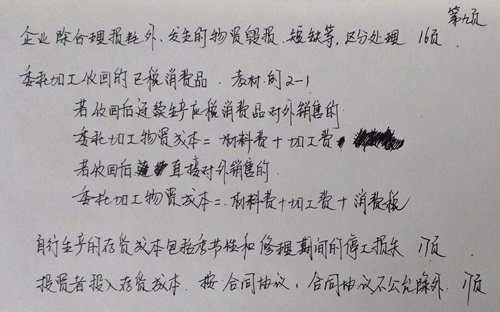 第九页
企业除合理损耗外,发生的物资毁损、短缺等,区分处理 16页
委托加工收回的已税消费品. 教材例2-1
若收回后连续生产应税消费品对外销售的
委托加工物资成本=材料费+加工费
若收回后直接对外销售的.
委托加工物资成本=材料费+加工费+消费税
自行生产的存货成本包括季节性和修理期间的停工损失 17页
投资者投入存货成本. 按合同协议,合同协议不公允除外. 17页